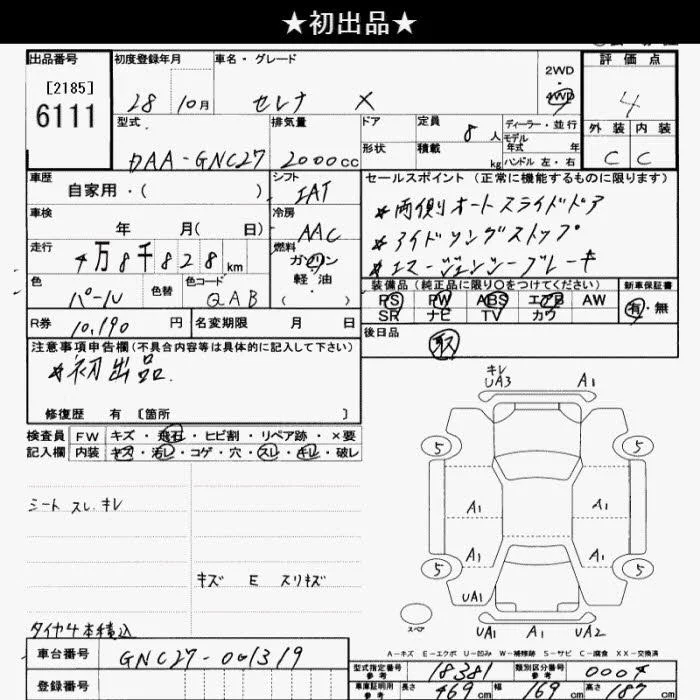 ★初出品★
出品番号
[2185]
6111
初度登録年月
28 10月
車名・グレード
セレナ X
2WD
4WD
評価点
4
外装 内装
C C
型式
DAA-GNC27
排気量
2000cc
ドア
形状
定員
8人
積載
kg
ディーラー・並行
モデル
年式 年
ハンドル 左・右
車歴
自家用・( )
シフト
IAT
冷房
AAC
車検
年 月( 日)
走行
4万8千828km
燃料
ガソリン
軽油
( )
色
パール
色替
色コード
QAB
R券
10,190円
名変期限 月 日
セールスポイント(正常に機能するものに限ります)
*両側オートスライドドア
*アイドリングストップ
*エマージェンシーブレーキ
装備品(純正品に限り○をつけてください)
PS PW ABS エアB AW
SR ナビ TV カワ
新車保証書
有・無
後日品
取
注意事項申告欄(不具合内容等は具体的に記入して下さい)
*初出品.
修復歴 有 〔箇所 〕
検査員
記入欄
FW キズ・飛石・ヒビ割・リペア跡・×要
内装 キズ・汚レ・コゲ・穴・スレ・キレ・破レ
シート スレ.キレ
キズ E スリキズ
タイヤ4本積込
キレ
UA3 A1
5 5
A1 A1
A1 A1
5 5
UA1
スペア
UA1 A1 UA2
A-キズ E-エクボ U-凹み W-補修跡 S-サビ C-腐食 XX-交換済
車台番号
GNC27-001319
登録番号
型式指定番号
参考
18381
類別区分番号
参考
0004
車庫証明用
参考
長さ 469cm 幅 169cm 高さ 187cm